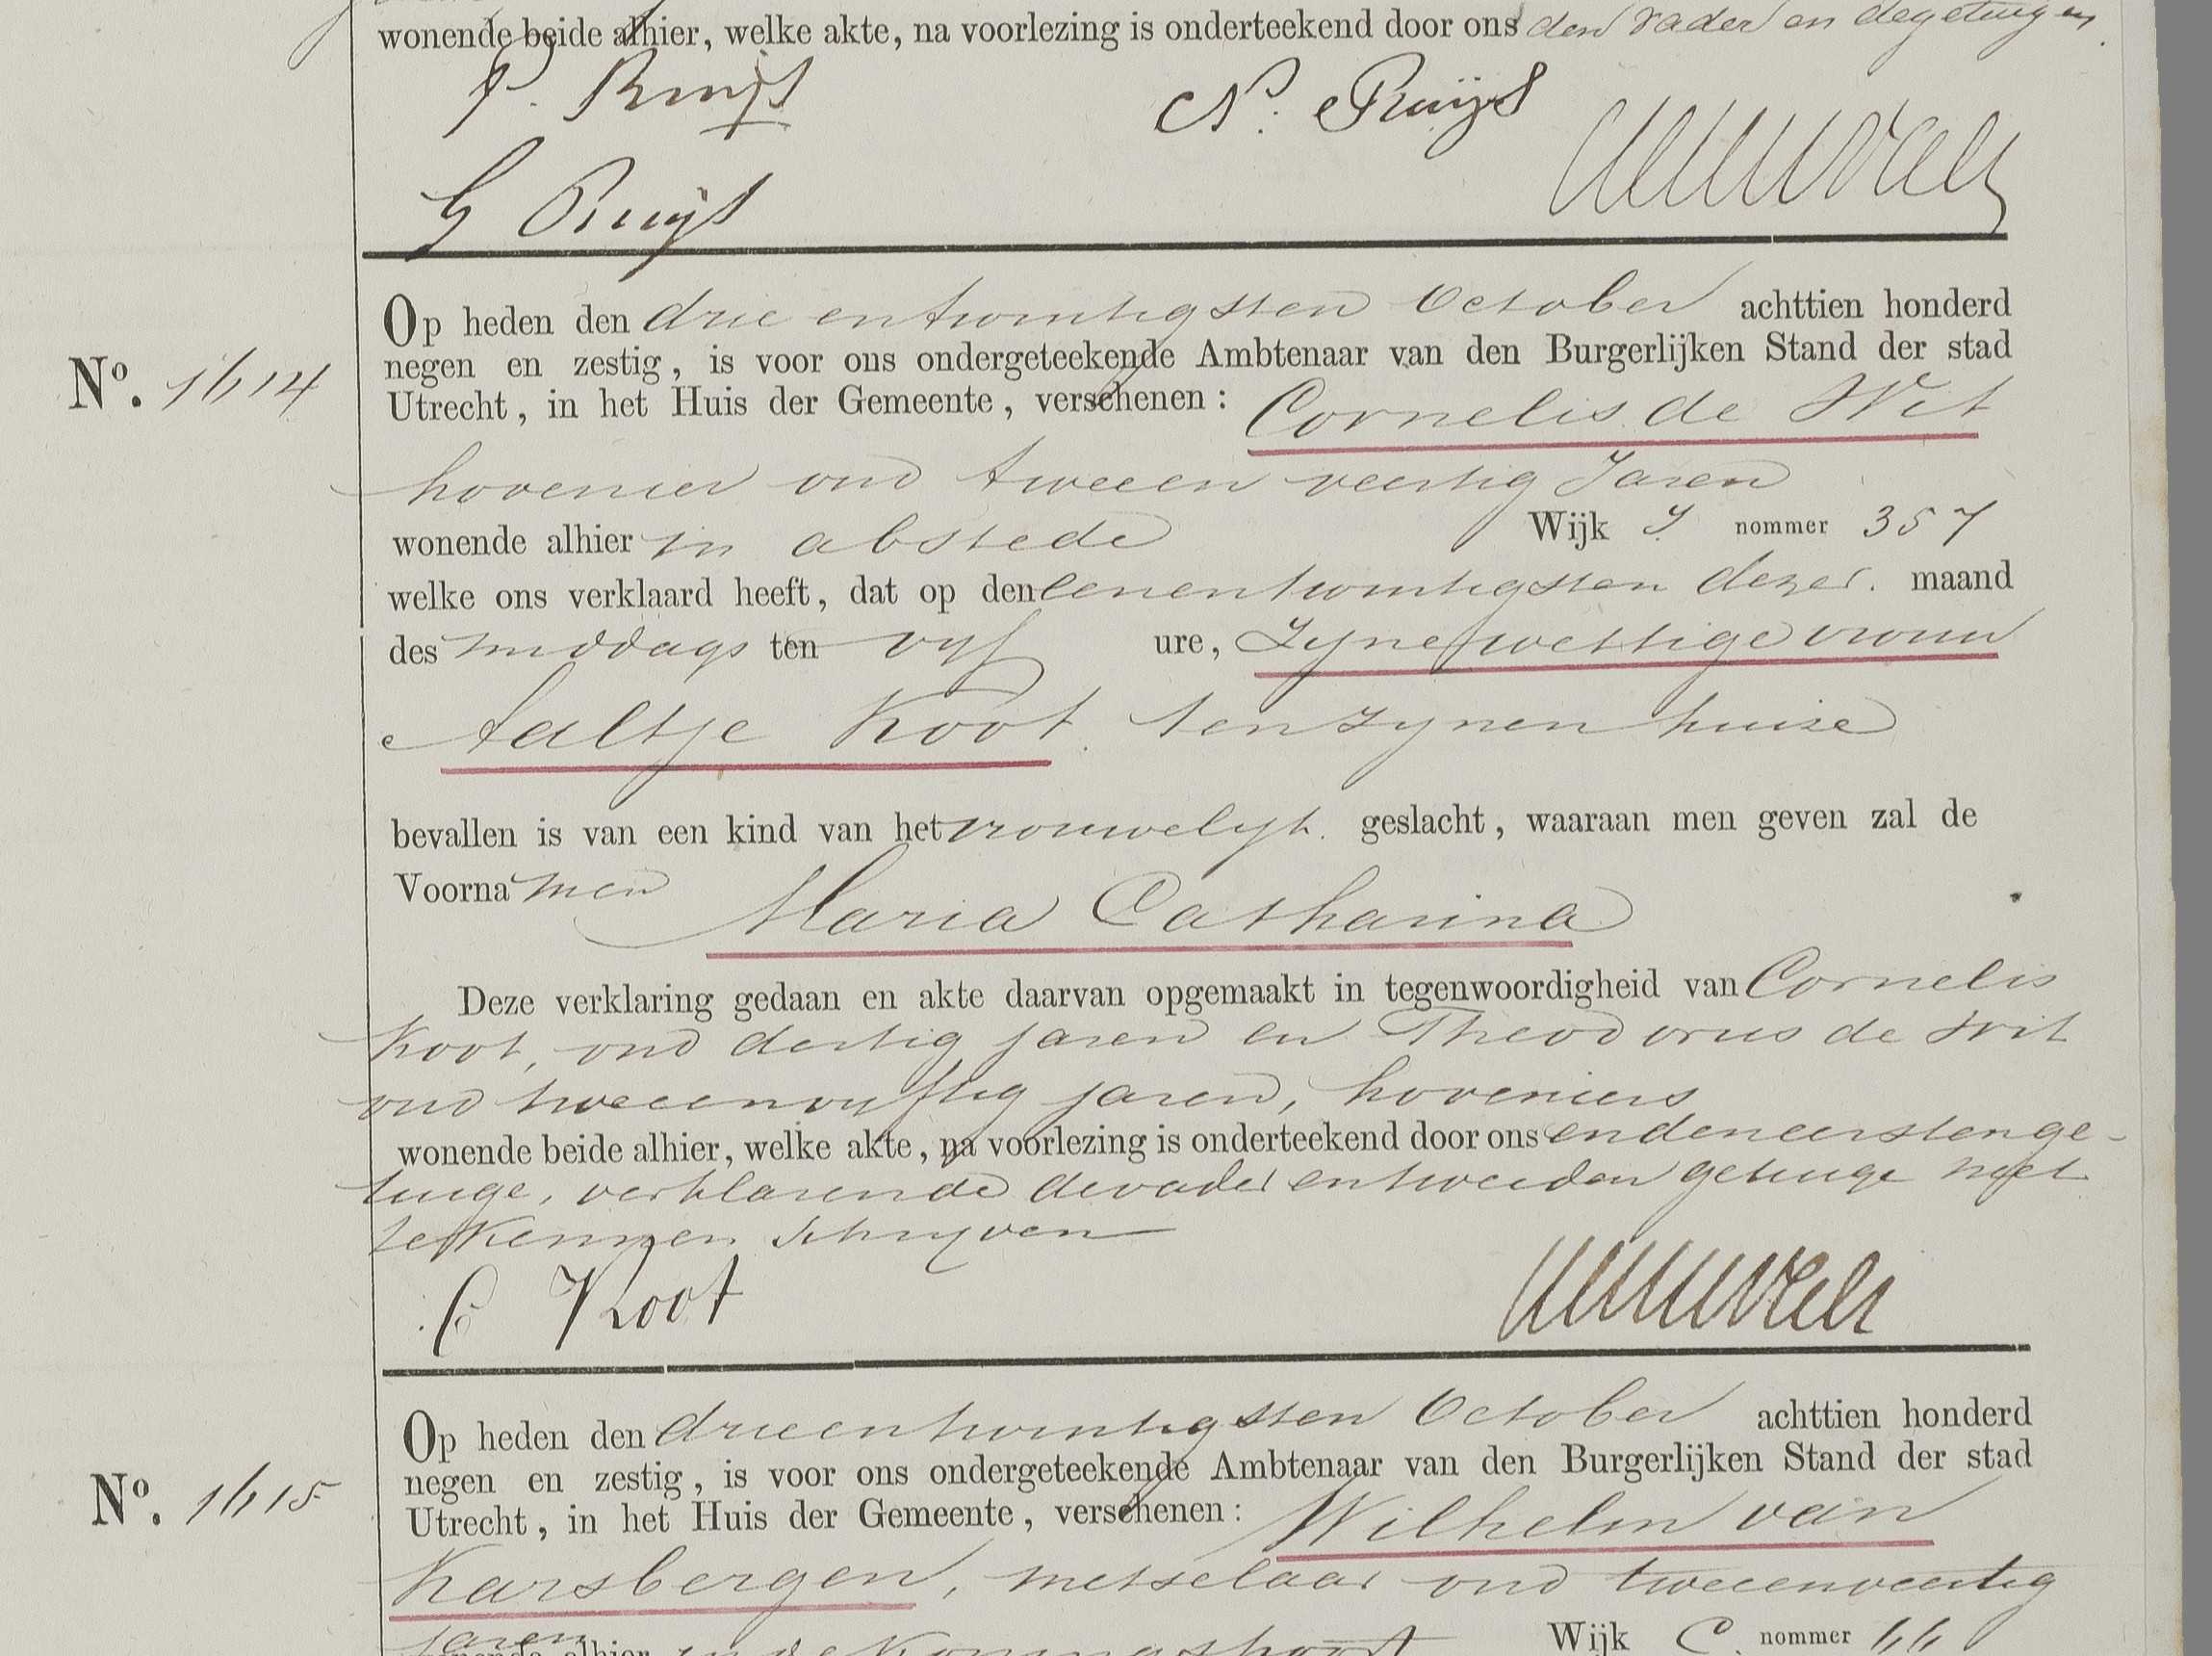 wonende beide alhier, welke akte, na voorlezing is onderteekend door ons den vader en de getuigen.
P. Ruijs
N. Ruijs
G Ruijs
Op heden den drie en twintigsten October achttien honderd
No. 1614
negen en zestig, is voor ons ondergeteekende Ambtenaar van den Burgerlijken Stand der stad
Utrecht, in het Huis der Gemeente, verschenen: Cornelis de Wit
hovenier oud tweeen veertig Jaren
wonende alhier in abstede Wijk J nommer 357
welke ons verklaard heeft, dat op den eenentwintigsten dezer. maand
des middags ten vyf ure, Zyne wettige vrouw
Aaltje Koot. ten zynen huize
bevallen is van een kind van het vrouwelyk. geslacht, waaraan men geven zal de
Voornamen Maria Catharina
Deze verklaring gedaan en akte daarvan opgemaakt in tegenwoordigheid van Cornelis
Koot, oud dertig jaren en Theodorus de Wit
oud tweeenvyftig jaren, hoveniers
wonende beide alhier, welke akte, na voorlezing is onderteekend door ons en den eersten ge-
tuige, verklarende de vader en tweeden getuige niet
te kennen schryven
C Koot
Op heden den drieentwintigsten October achttien honderd
No. 1615
negen en zestig, is voor ons ondergeteekende Ambtenaar van den Burgerlijken Stand der stad
Utrecht, in het Huis der Gemeente, verschenen: Wilhelm van
Karsbergen, metselaar oud tweeenveertig
jaren
wonende alhier in de Wijk C. nommer 66